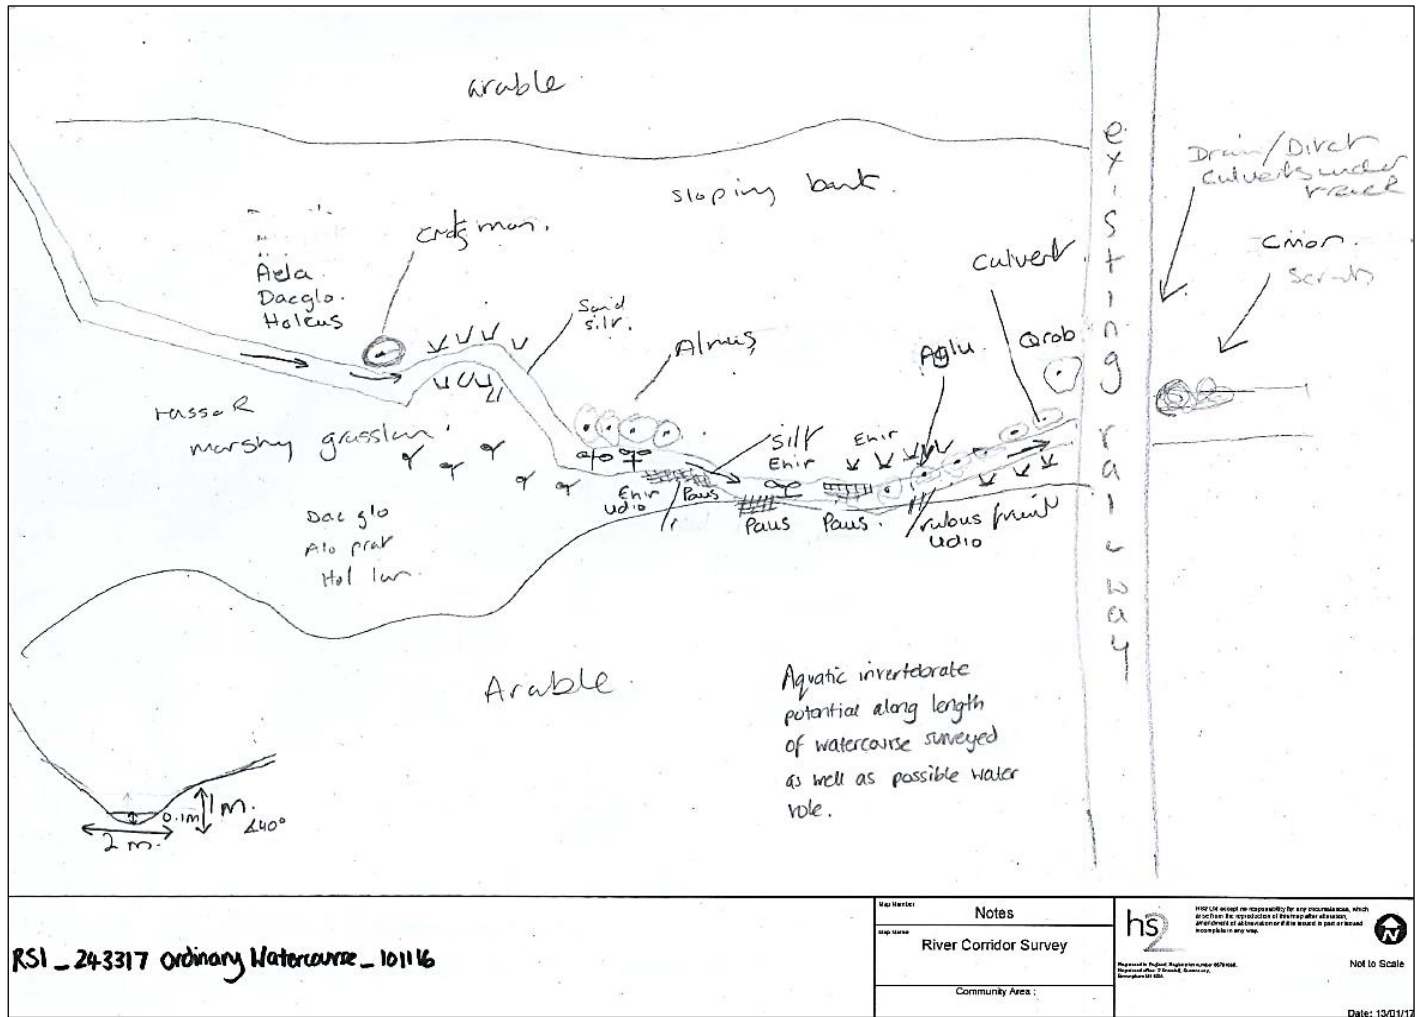 arable
sloping bank.
existing railway
Drain/Ditch
culverts under
track
Cmon.
Scrub
culvert
Crataeg mon.
Dacglo.
Holcus
Sand
silt.
Alnus
Aglu.
Qrob
marshy
Dac glo
Alo prat
Hol lan.
silt
Ehir
Ehir
Ehir
Udio
Paus
Paus
Paus.
rubus fruit
Udio
Arable.
Aquatic invertebrate
potential along length
of watercourse surveyed
as well as possible water
vole.
0.1m
1m.
∡40°
2 m.
RS1_243317 Ordinary Watercourse_101116
Map Number
Notes
Map Name
River Corridor Survey
Community Area :
hs2
N
Not to Scale
Date: 13/01/17